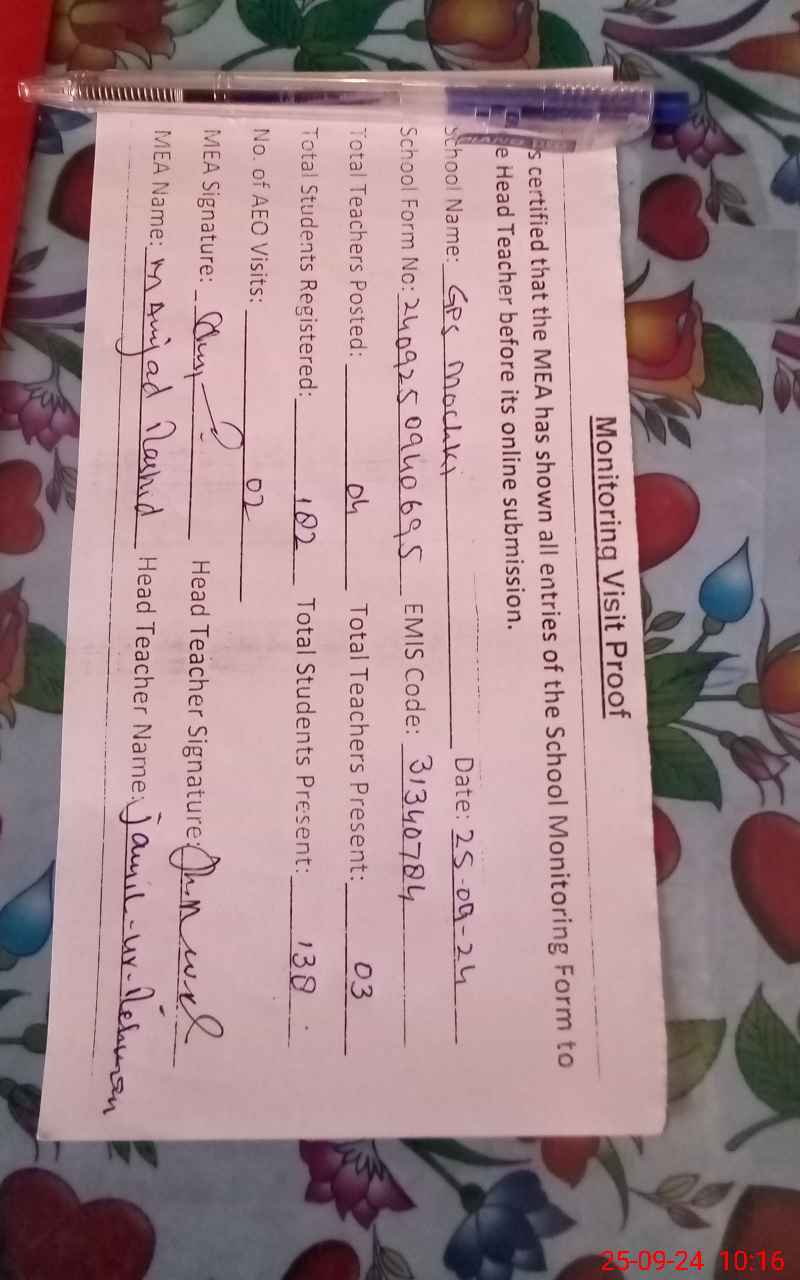 Monitoring Visit Proof
s certified that the MEA has shown all entries of the School Monitoring Form to
e Head Teacher before its online submission.
School Name: GPS Mochki Date: 25-09-24
School Form No: 240925 0940695 EMIS Code: 31340784
Total Teachers Posted: 04 Total Teachers Present: 03
Total Students Registered: 182 Total Students Present: 138
No. of AEO Visits: 02
MEA Signature: Head Teacher Signature:
MEA Name: M Amjad Rashid Head Teacher Name: Jamil-ur-Rehman
25-09-24 10:16